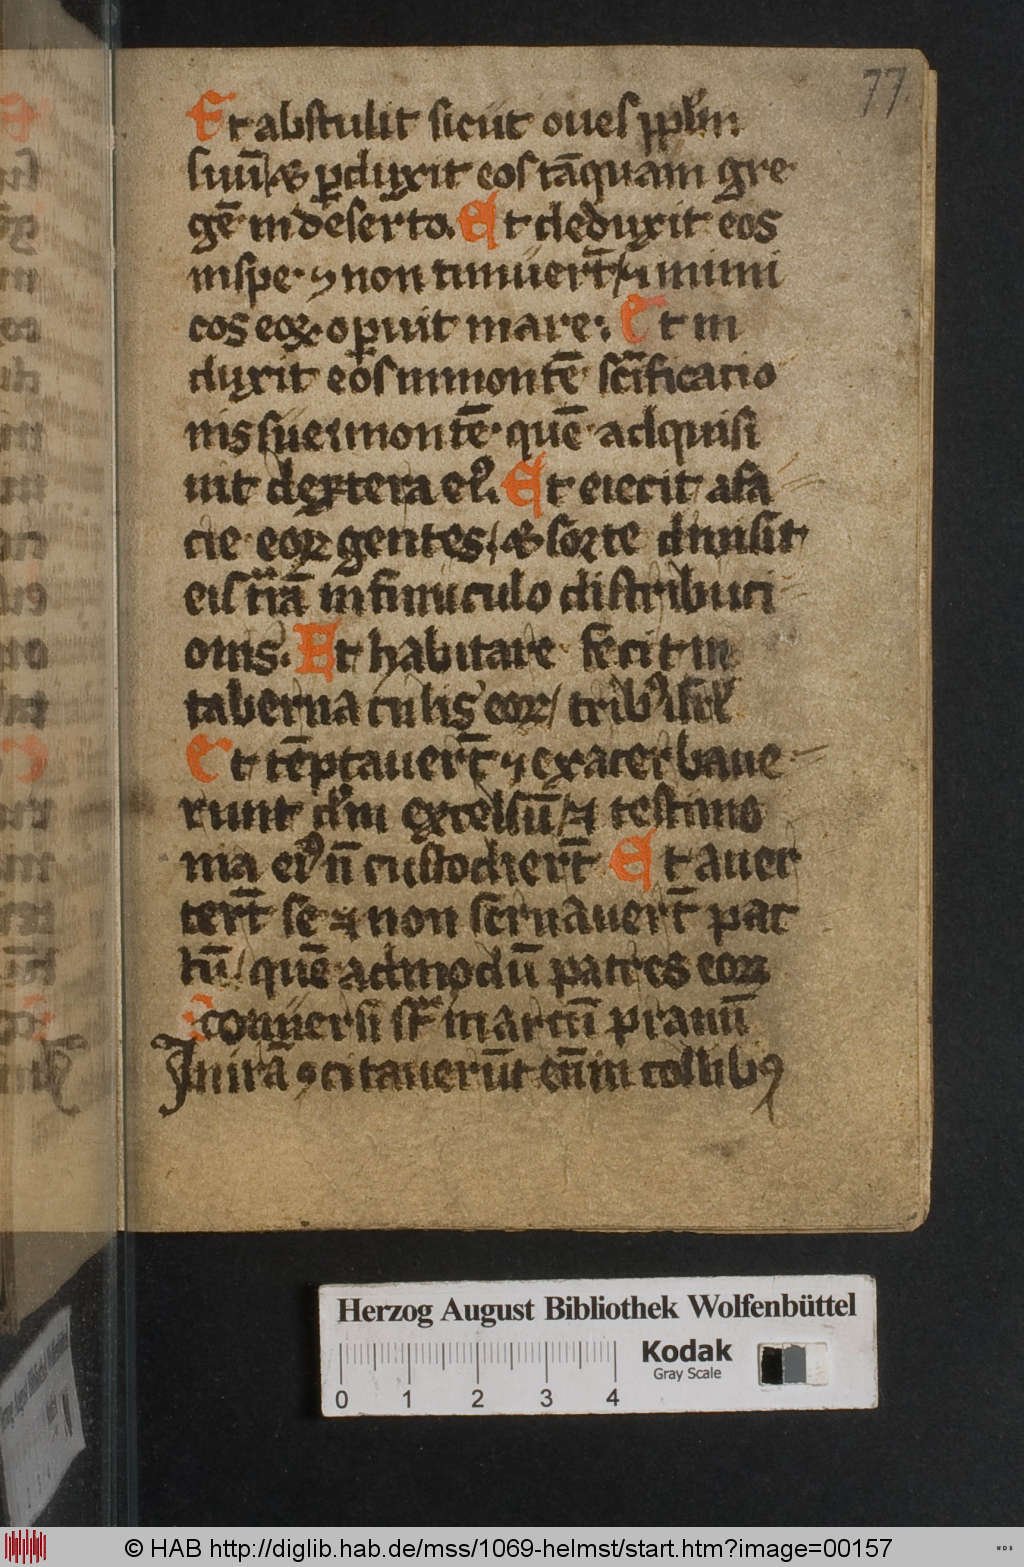 77
Et abstulit sicut oues ppłm
suu᷈ & ꝑduxit eos tāquam gre
gē in deserto. Et deduxit eos
in spe · ⁊ non timuert̄ / ⁊ inimi
cos eoꝝ · oꝑuit mare : Et in
duxit eos in montē scīficatio
nis sue : montē · quē adquisi
uit dextera eiꝰ. Et eiecit afa
cie eoꝝ gentes / & sorte diuisit
eis t̄rā in funiculo distributi
onis. Et habitare fecit in
tabernaculis eoꝝ / tribꝰ isrł
Et tēptauert̄ ⁊ exacerbaue
runt dm̄ excelsū / ⁊ testimo
nia eiꝰ n̄ custodiert̄ Et auer
tert̄ se ⁊ non seruauert̄ pac
tū / quē admodū patres eoꝝ
conuersi st̄ in arcū prauū
In irā ꝯcitauerūt eū in collibꝰ
Herzog August Bibliothek Wolfenbüttel
Kodak
Gray Scale
0 1 2 3 4
© HAB http://diglib.hab.de/mss/1069-helmst/start.htm?image=00157